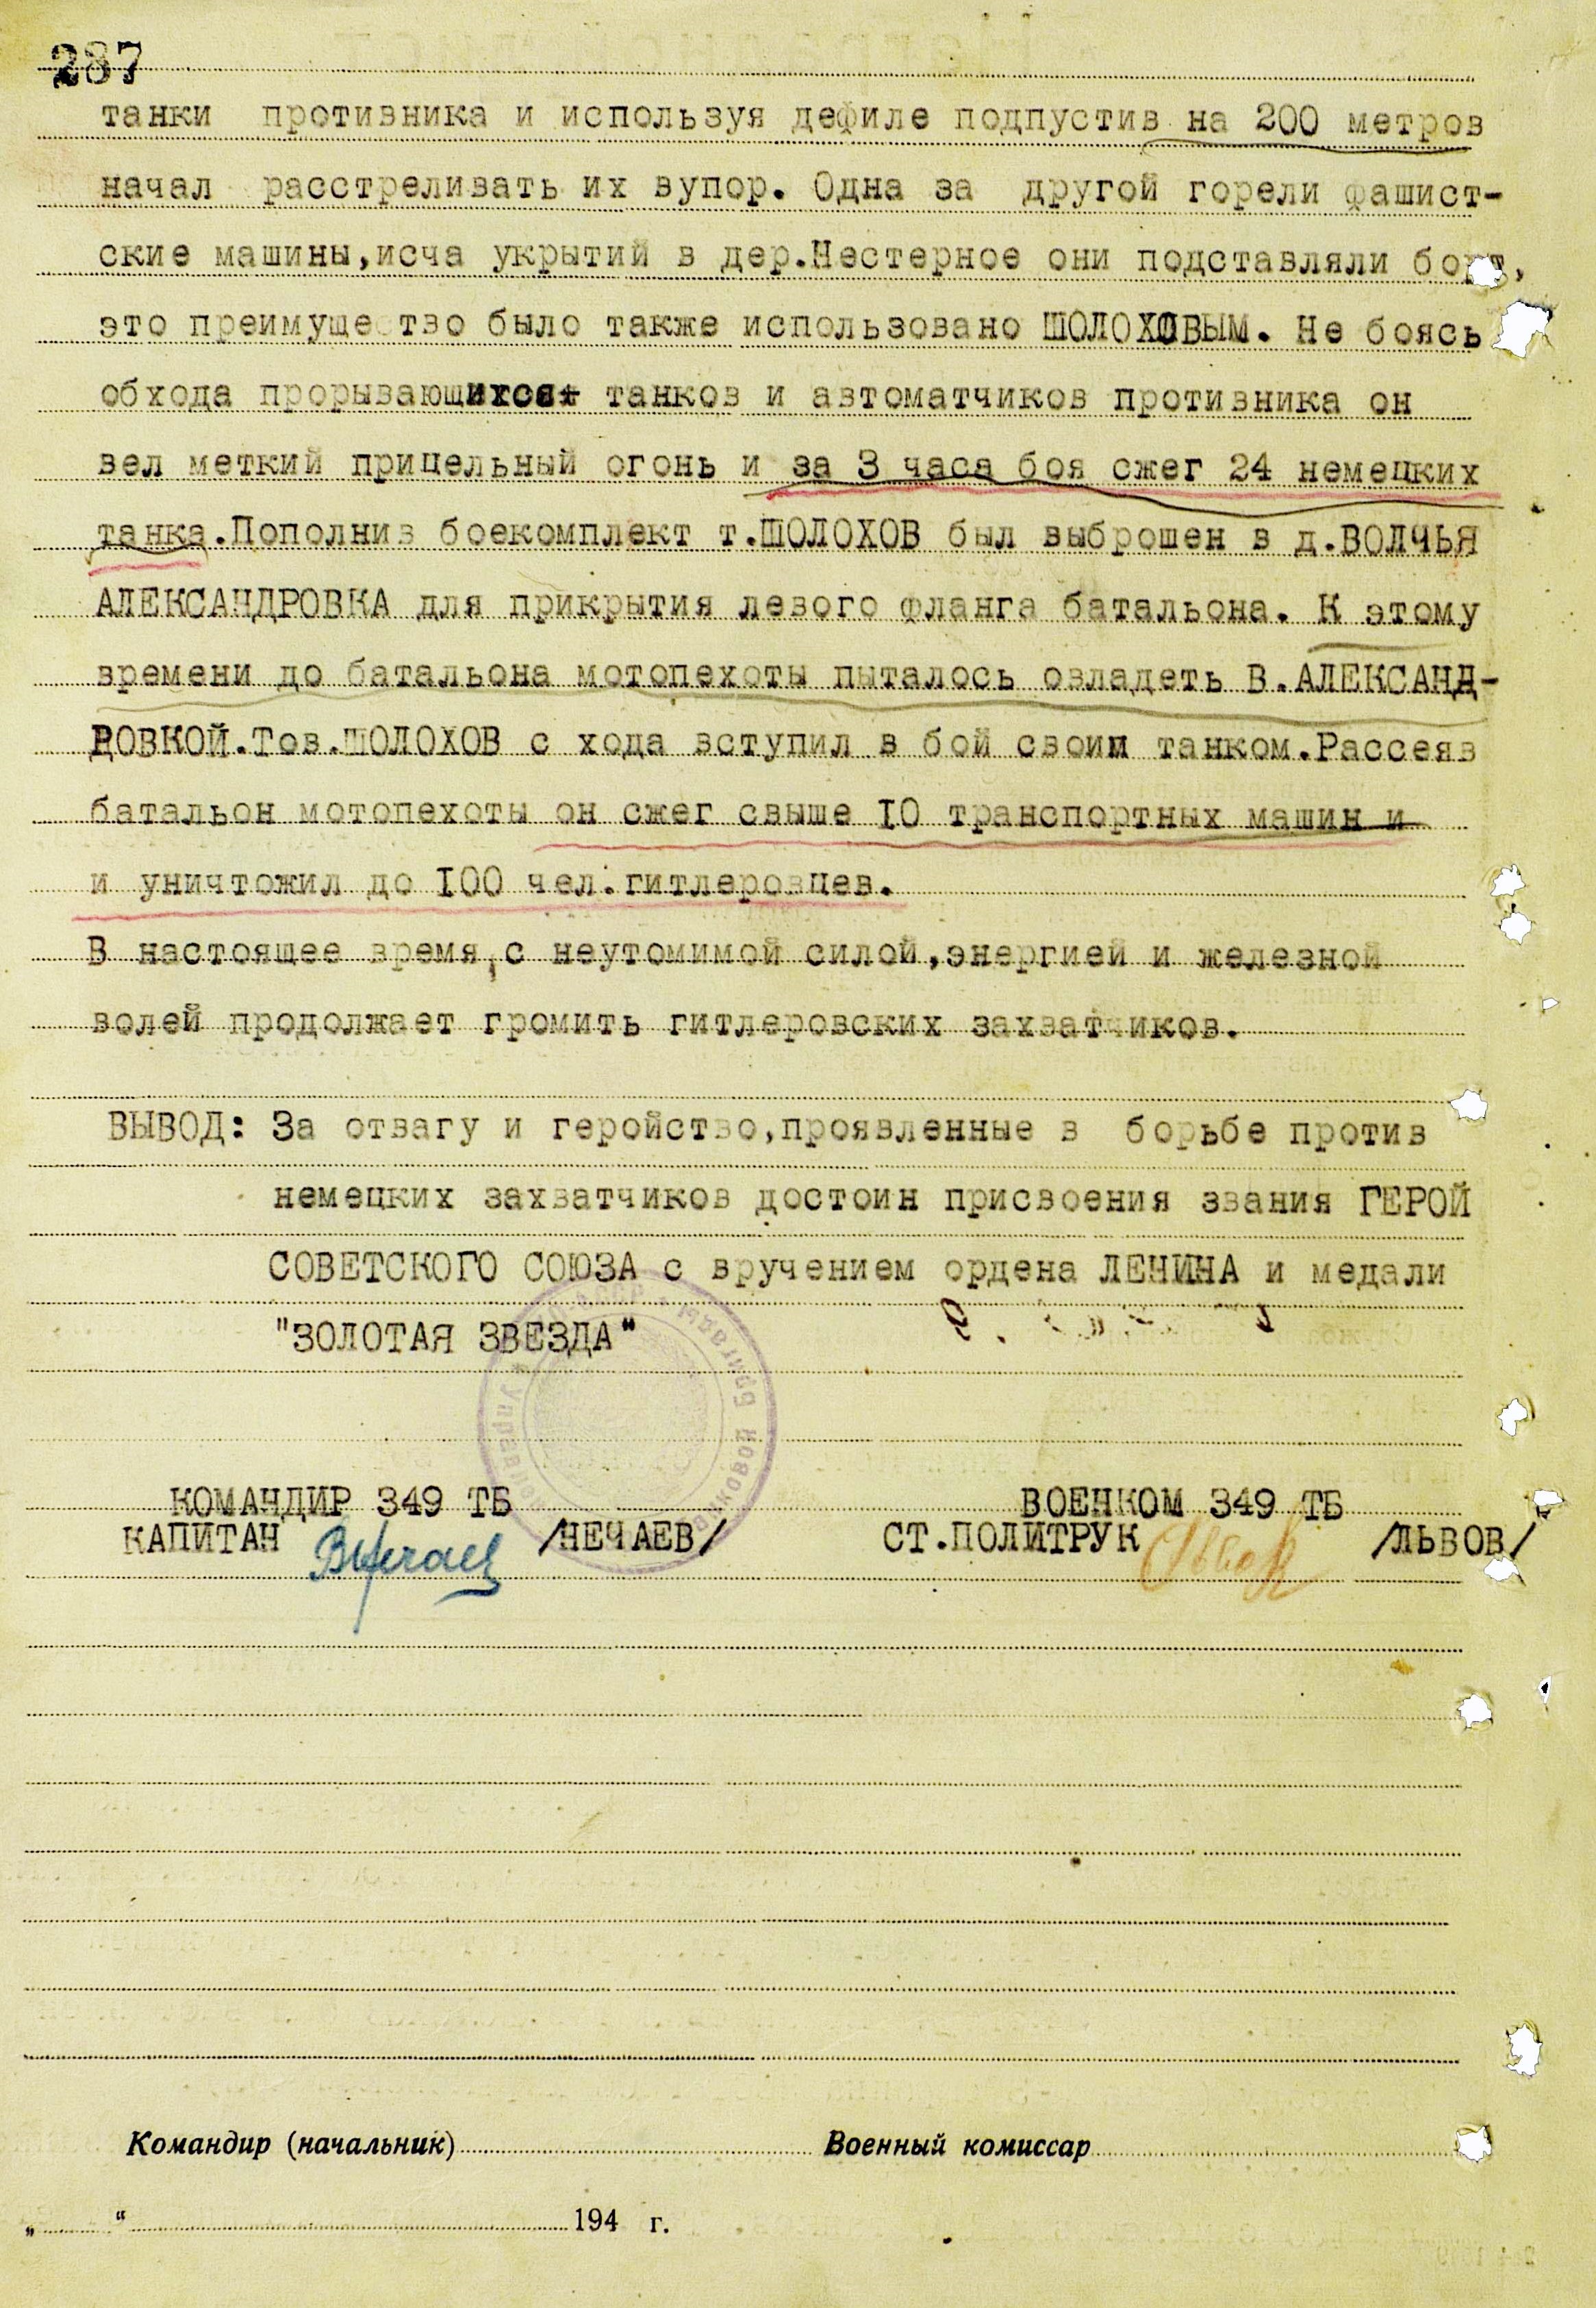 287
танки противника и используя дефиле подпустив на 200 метров
начал расстреливать их вупор. Одна за другой горели фашист-
ские машины,исча укрытий в дер.Нестерное они подставляли борт,
это преимущество было также использовано ШОЛОХОВЫМ. Не боясь
обхода прорывающихся танков и автоматчиков противника он
вел меткий прицельный огонь и за 3 часа боя сжег 24 немецких
танка.Пополнив боекомплект т.ШОЛОХОВ был выброшен в д.ВОЛЧЬЯ
АЛЕКСАНДРОВКА для прикрытия левого фланга батальона. К этому
времени до батальона мотопехоты пыталось овладеть В.АЛЕКСАНД-
РОВКОЙ.Тов.ШОЛОХОВ с хода вступил в бой своим танком.Рассеяв
батальон мотопехоты он сжег свыше 10 транспортных машин и
и уничтожил до 100 чел.гитлеровцев.
В настоящее время,с неутомимой силой,энергией и железной
волей продолжает громить гитлеровских захватчиков.
ВЫВОД: За отвагу и геройство,проявленные в борьбе против
немецких захватчиков достоин присвоения звания ГЕРОЙ
СОВЕТСКОГО СОЮЗА с вручением ордена ЛЕНИНА и медали
"ЗОЛОТАЯ ЗВЕЗДА"
КОМАНДИР 349 ТБ ВОЕНКОМ 349 ТБ
КАПИТАН /НЕЧАЕВ/ СТ.ПОЛИТРУК /ЛЬВОВ/
Командир (начальник) Военный комиссар
„ “ 194 г.